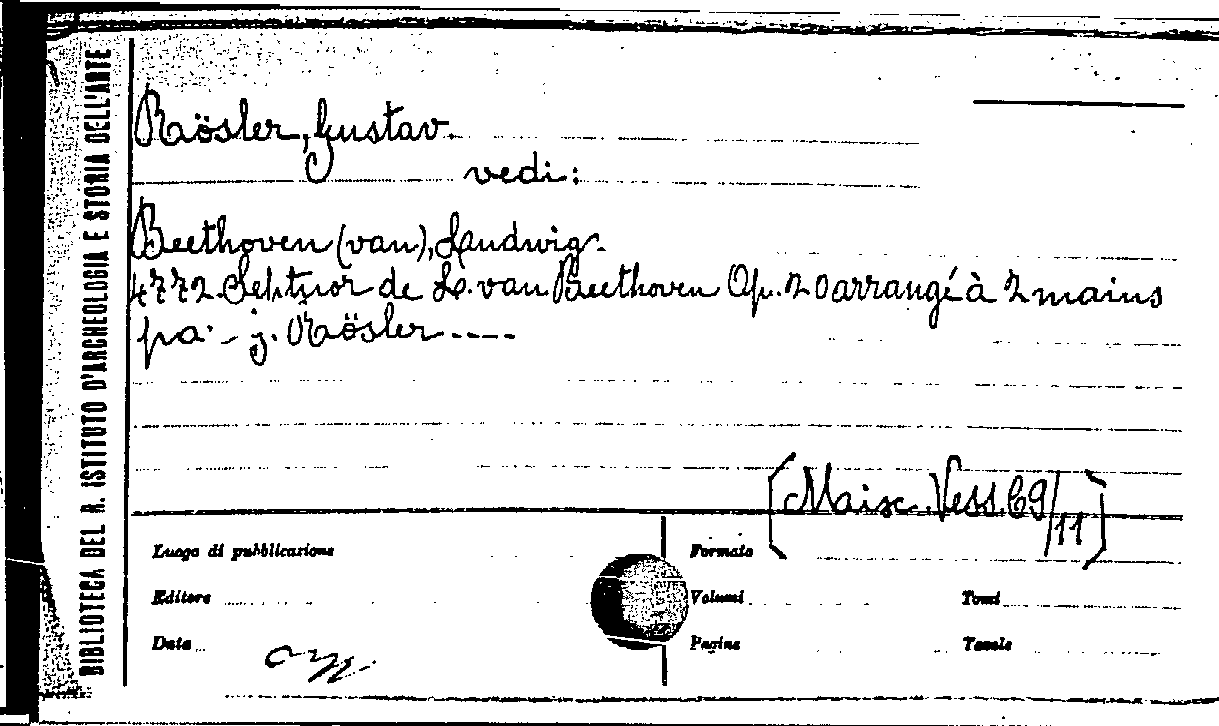 BIBLIOTECA DEL R. ISTITUTO D'ARCHEOLOGIA E STORIA DELL'ARTE
Raösler, Gustav.
vedi:
Beethoven (van), Ludwig.
4772. Septuor de L. van Beethoven Op. 20 arrangé à 2 mains
pa - j. Raösler ----
[Misc. Vess. 69/11]
Luogo di pubblicazione
Formato
Editore
Volumi
Tomi
Data
Pagine
Tavole